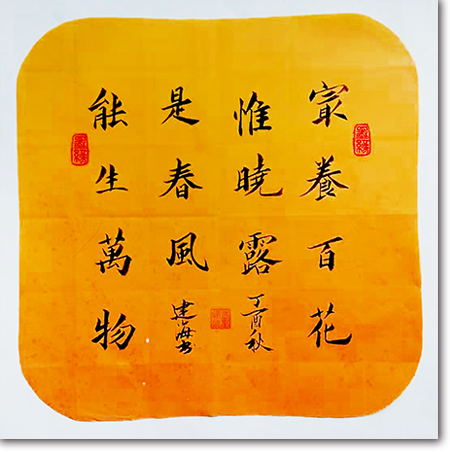 㝡養百花
惟曉露 丁酉秋
是春風 建海书
能生萬物